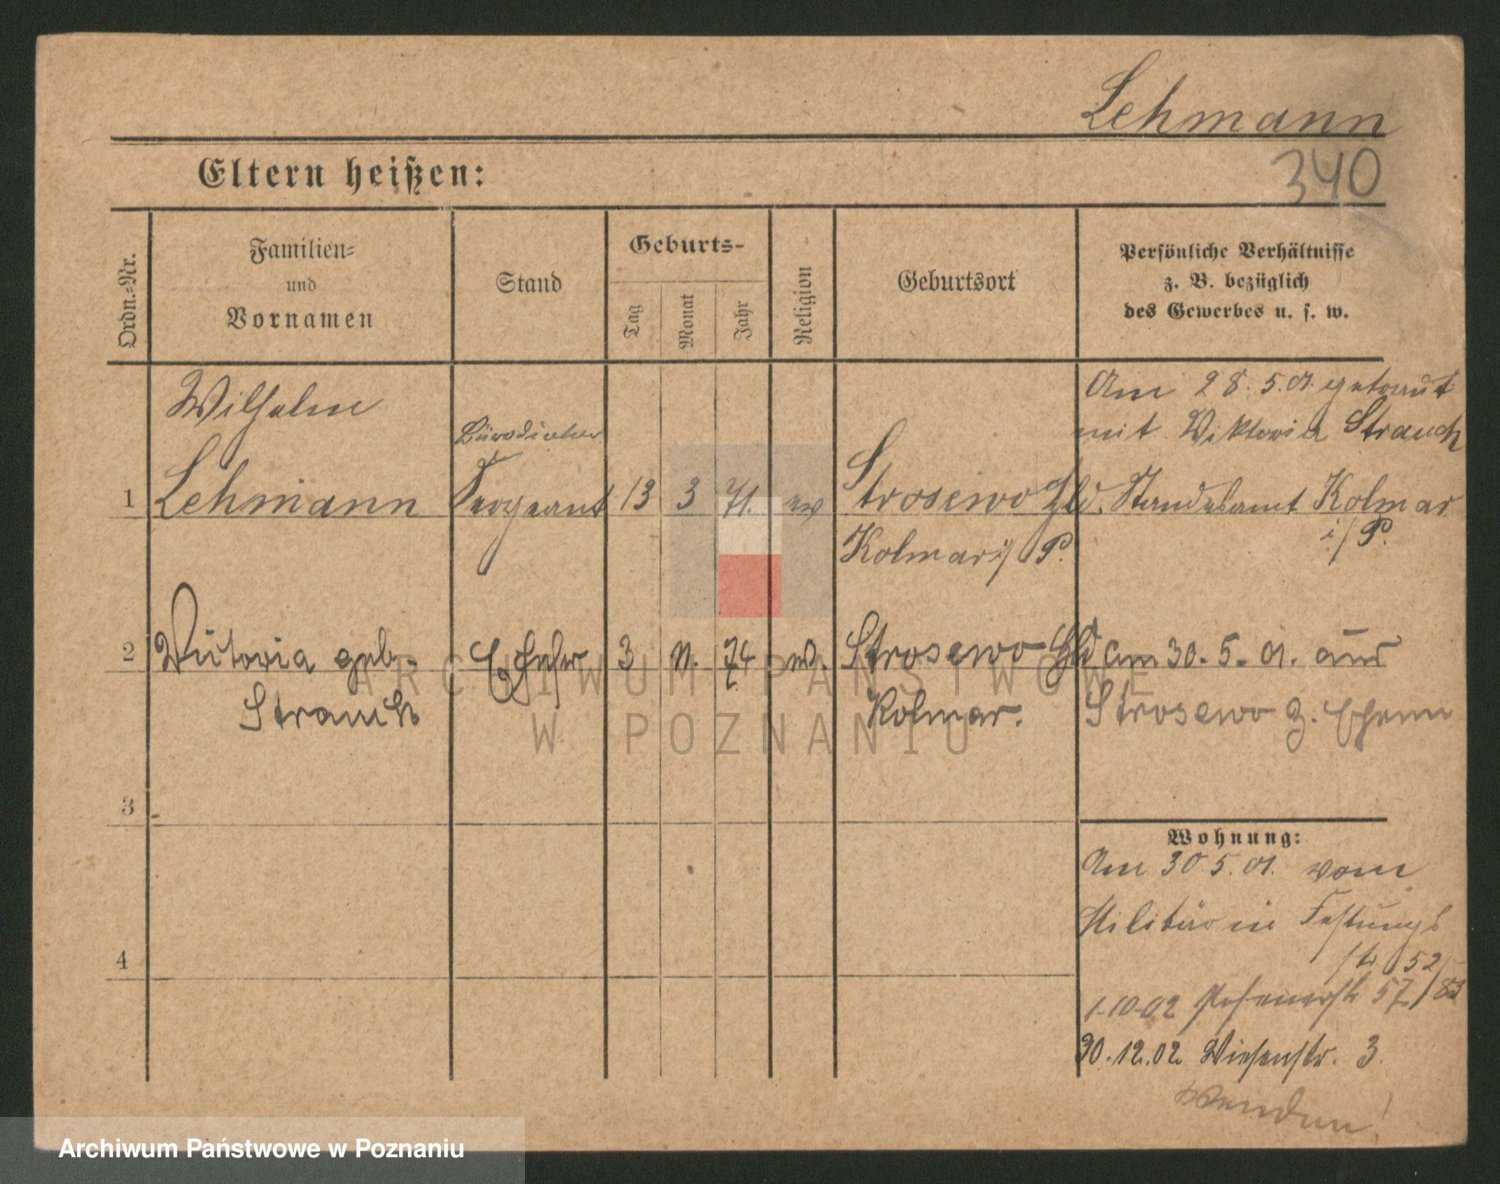 Lehmann
Eltern heißen:
340
Ordn.-Nr.
Familien-
und
Vornamen
Stand
Geburts-
Tag
Monat
Jahr
Religion
Geburtsort
Persönliche Verhältnisse
z. B. bezüglich
des Gewerbes u. s. w.
Wilhelm
1 Lehmann
Bürodiener
Sergeant
13 3 71. ev
Strosewo Hld.
Kolmar i/ P.
Am 28.5.01. getraut
mit Viktoria Strauch
Standesamt Kolmar
i/ P.
2 Viktoria geb.
Strauch
Ehefr
3 11. 74 ev.
Strosewo Hld
Kolmar.
am 30.5.01. aus
Strosewo z. Ehem
3
4
Wohnung:
Am 30 5.01. vom
Militär in Festungs
str 52/83
1-10-02 Posenerstr 57
30.12.02 Wiesenstr. 3.
wenden!
ARCHIWUM PAŃSTWOWE
W POZNANIU
Archiwum Państwowe w Poznaniu